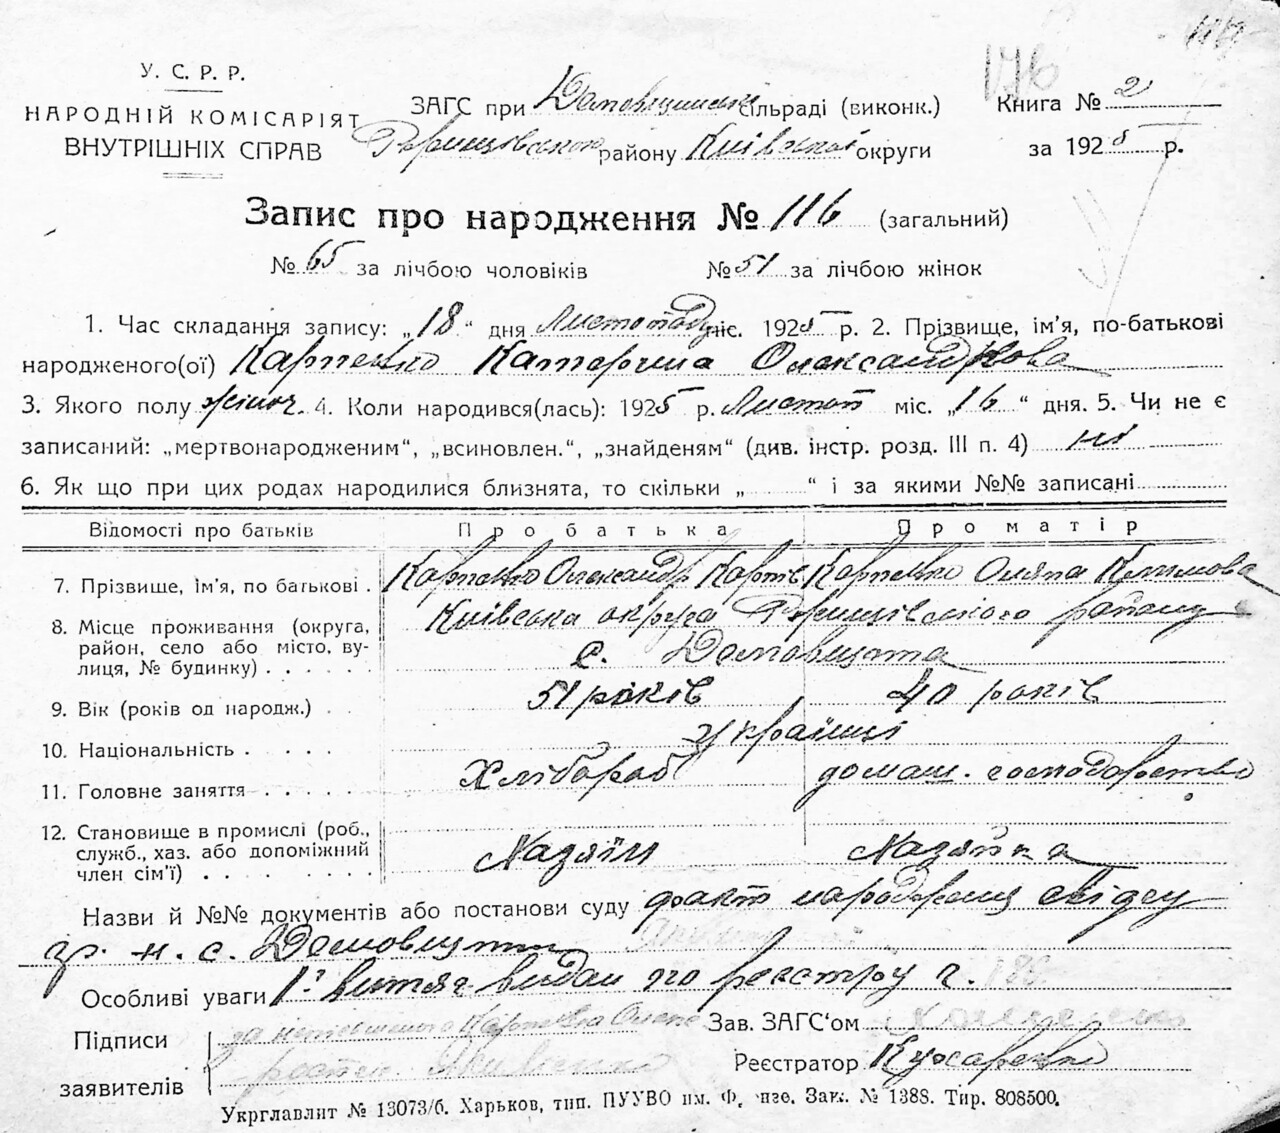 176
У. С. Р. Р.
НАРОДНІЙ КОМІСАРІЯТ
ВНУТРІШНІХ СПРАВ
ЗАГС при сільраді (виконк.)
району Київської округи
Книга № 2
за 1925 р.
Запис про народження № 116 (загальний)
№ 65 за лічбою чоловіків № 51 за лічбою жінок
1. Час складання запису: „18“ дня Листопаду міс. 1925 р. 2. Прізвище, ім’я, по-батькові
народженого(ої) Карпенко Катерина Олександрова
3. Якого полу жіноч. 4. Коли народився(лась): 1925 р. Листоп міс. „16“ дня. 5. Чи не є
записаний: „мертвонародженим“, „всиновлен.“, „знайденям“ (див. інстр. розд. III п. 4) ні
6. Як що при цих родах народилися близнята, то скільки „ “ і за якими №№ записані
Відомості про батьків Про батька Про матір
7. Прізвище, ім’я, по батькові . Карпенко Олександр Карпів Карпенко Оляна Климова
8. Місце проживання (округа, район, село або місто, вулиця, № будинку) . . . . . Київська округа району
с. Домовицта
9. Вік (років од народж.) . . 51 років 40 років
10. Національність . . . . . українці
11. Головне заняття . . . . . Хлібороб домаш. господарство
12. Становище в промислі (роб., служб., хаз. або допоміжний член сім’ї) . . . . . . . Хазяїн Хазяйка
Назви й №№ документів або постанови суду факт народження свідсу
гр. н. с.
Особливі уваги 1й витяг видан по реєстру ч.
Підписи
заявителів
за неписьменого Карпенка Олекс
Зав. ЗАГС‘ом
Реєстратор
Укрглавлит № 13073/б. Харьков, тип. ПУУВО им. Ф. Зак. № 1388. Тир. 808500.